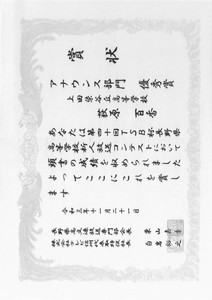 賞状
アナウンス部門 優秀賞
上田染谷丘高等学校
萩原 百香
あなたは第四十回TSB杯長野県
高等学校新人放送コンテストにおいて
頭書の成績を収められました
よってここにこれを賞し
ます
令和三年十一月二十一日
長野県高文連放送専門部会長
株式会社テレビ信州代表取締役社長